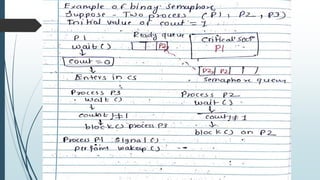 Example of binary semaphore
Suppose - Two process (P1, P2, P3)
Initial value of count = 1
P1 Ready queue
wait () P2 Critical sect
P1
count = 0
Enters in cs P3 P2 semaphore queue
Process P3 Process P2
wait () wait ()
count ≠ 1 count ≠ 1
block () process P3 block () on P2
Process P1 signal ()
perform wakeup ()